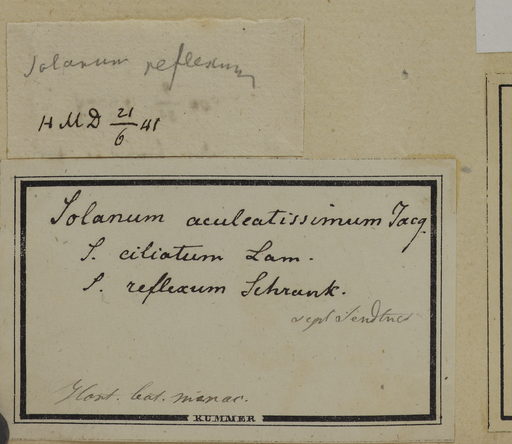 Solanum reflexum
HMD 21/6 41
Solanum aculeatissimum Jacq.
S. ciliatum Lam.
S. reflexum Schrank.
Sendtner
Hort. bot. monac.
KUMMER